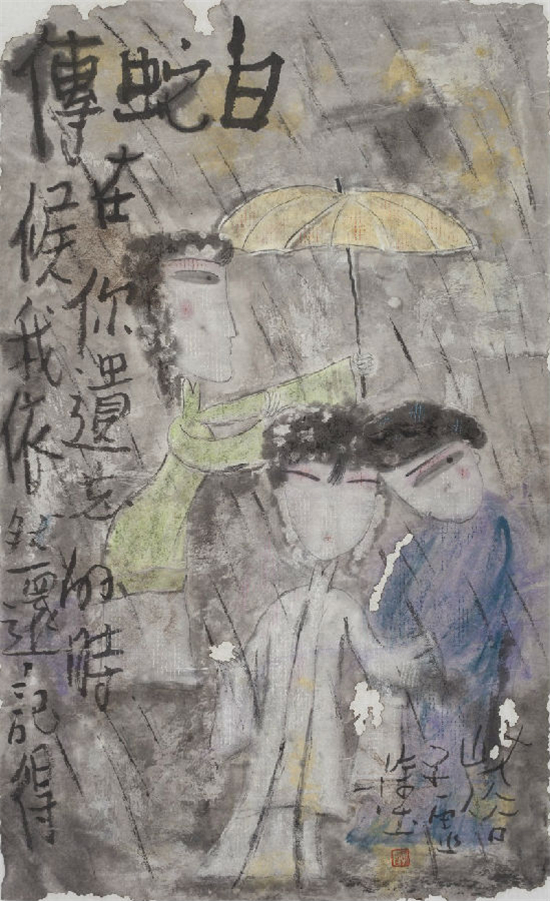 白蛇傳
在你遺忘的時
候我依然還記得